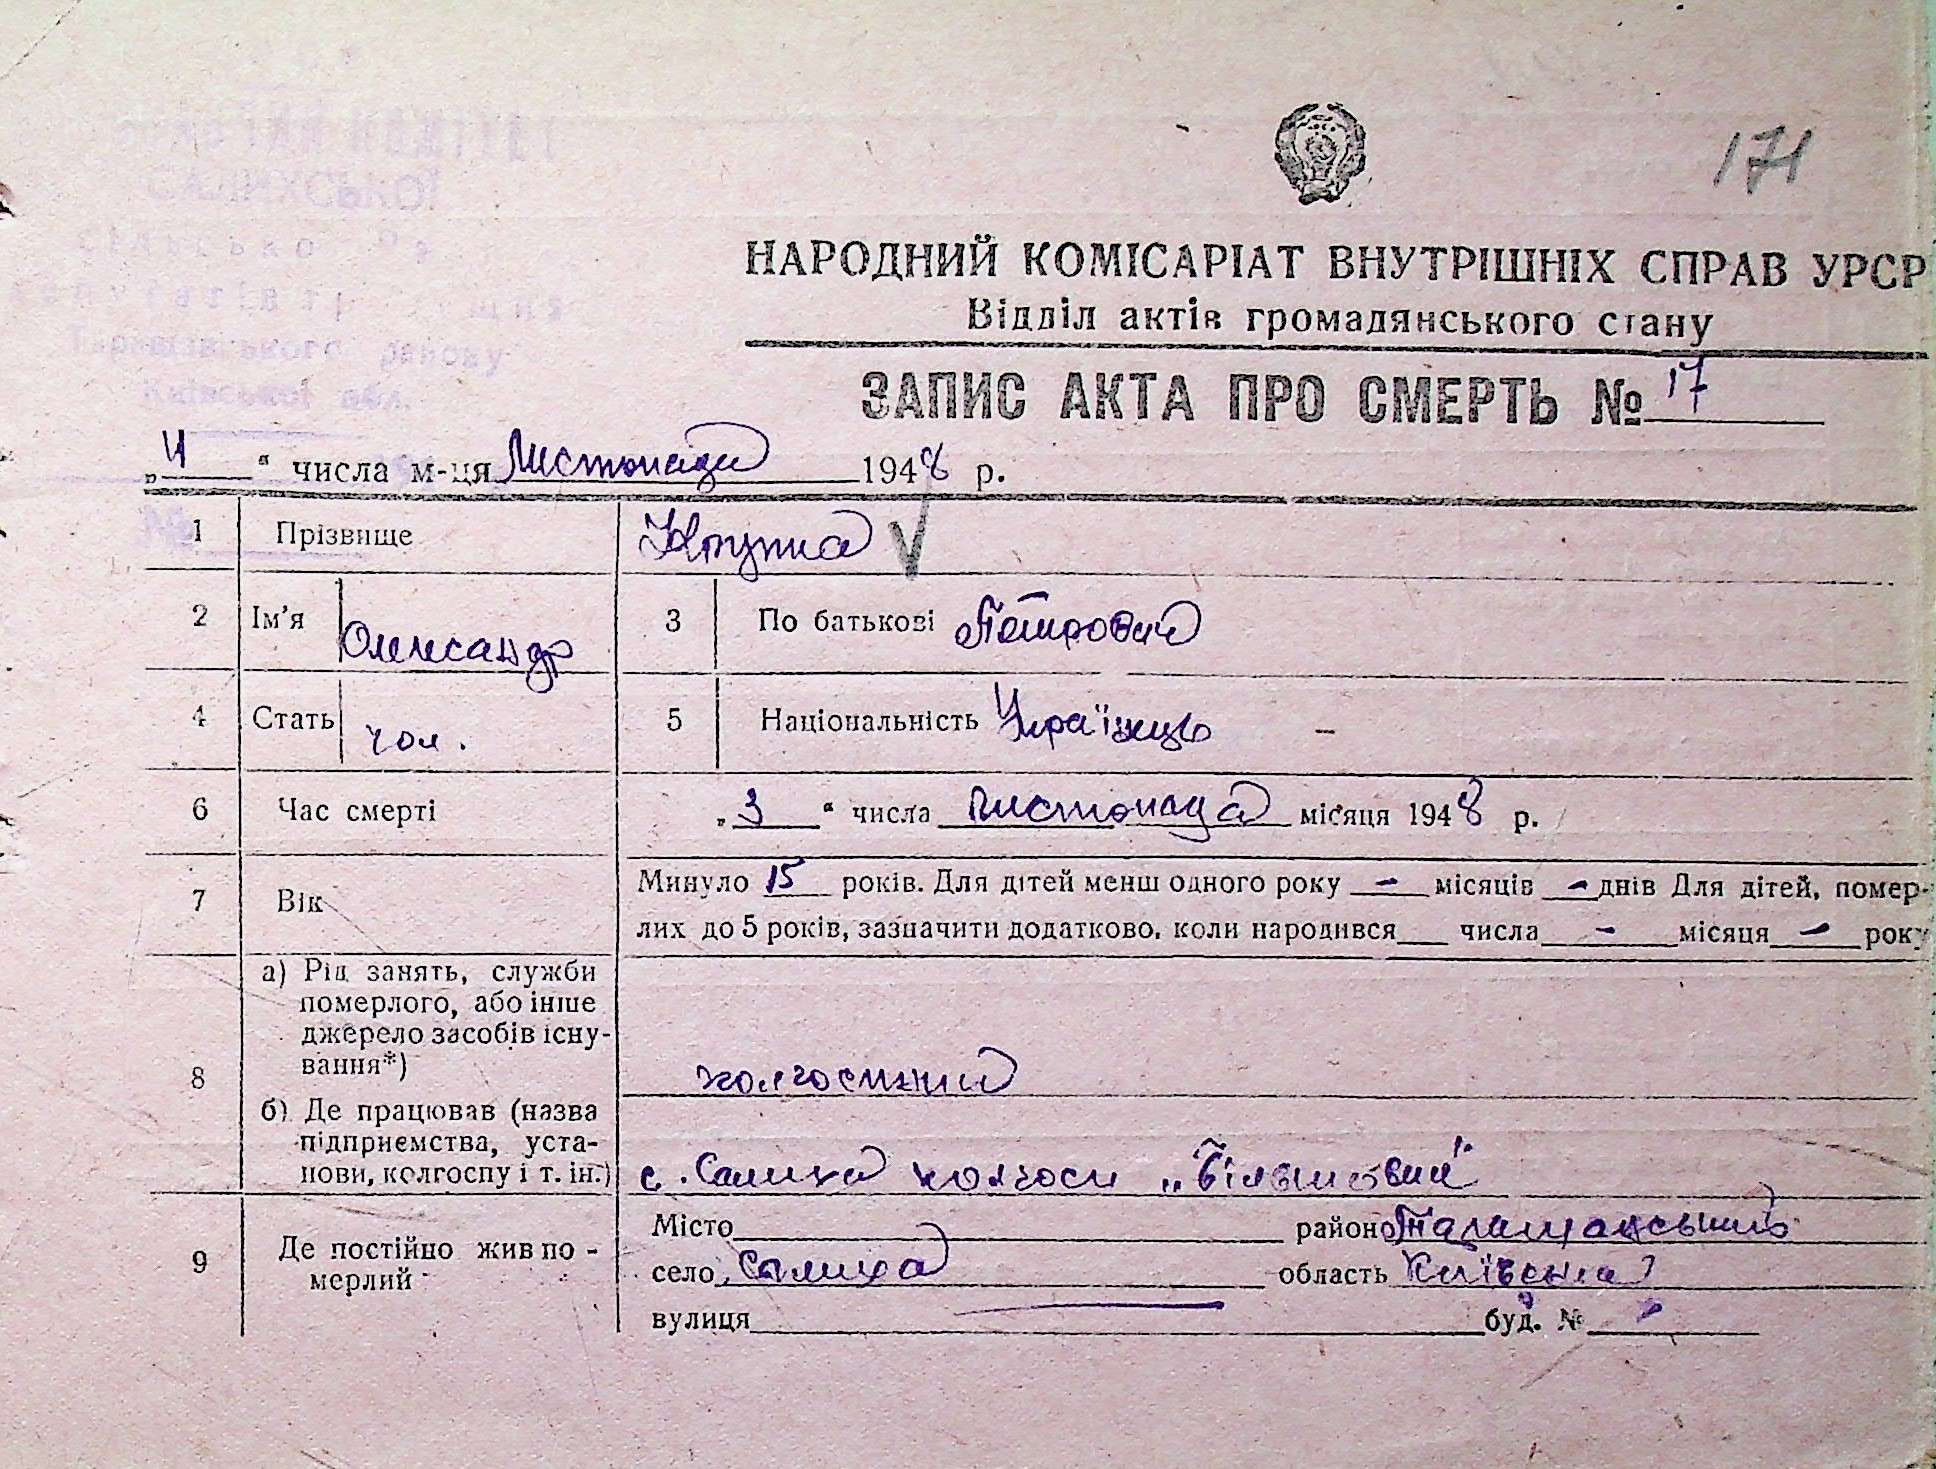 171
НАРОДНИЙ КОМІСАРІАТ ВНУТРІШНІХ СПРАВ УРСР
Відділ актів громадянського стану
ЗАПИС АКТА ПРО СМЕРТЬ № 17
„ 4 “ числа м-ця Листопада 1948 р.
САЛИХСЬКОЇ
Таращанського району
Київської обл.
1 Прізвище Крупка
2 Ім'я Олександр 3 По батькові Петрович
4 Стать чол. 5 Національність Українець –
6 Час смерті „ 3 “ числа листопада місяця 1948 р.
7 Вік Минуло 15 років. Для дітей менш одного року – місяців – днів Для дітей, помер-
лих до 5 років, зазначити додатково, коли народився числа – місяця – року
8 а) Рід занять, служби
померлого, або інше
джерело засобів існу-
вання*) колгоспний
б) Де працював (назва
підприємства, уста-
нови, колгоспу і т. ін.) с. Салиха колгосп „Більшовик"
9 Де постійно жив по-
мерлий
Місто район Таращанський
село Салиха область Київська
вулиця — буд. № –